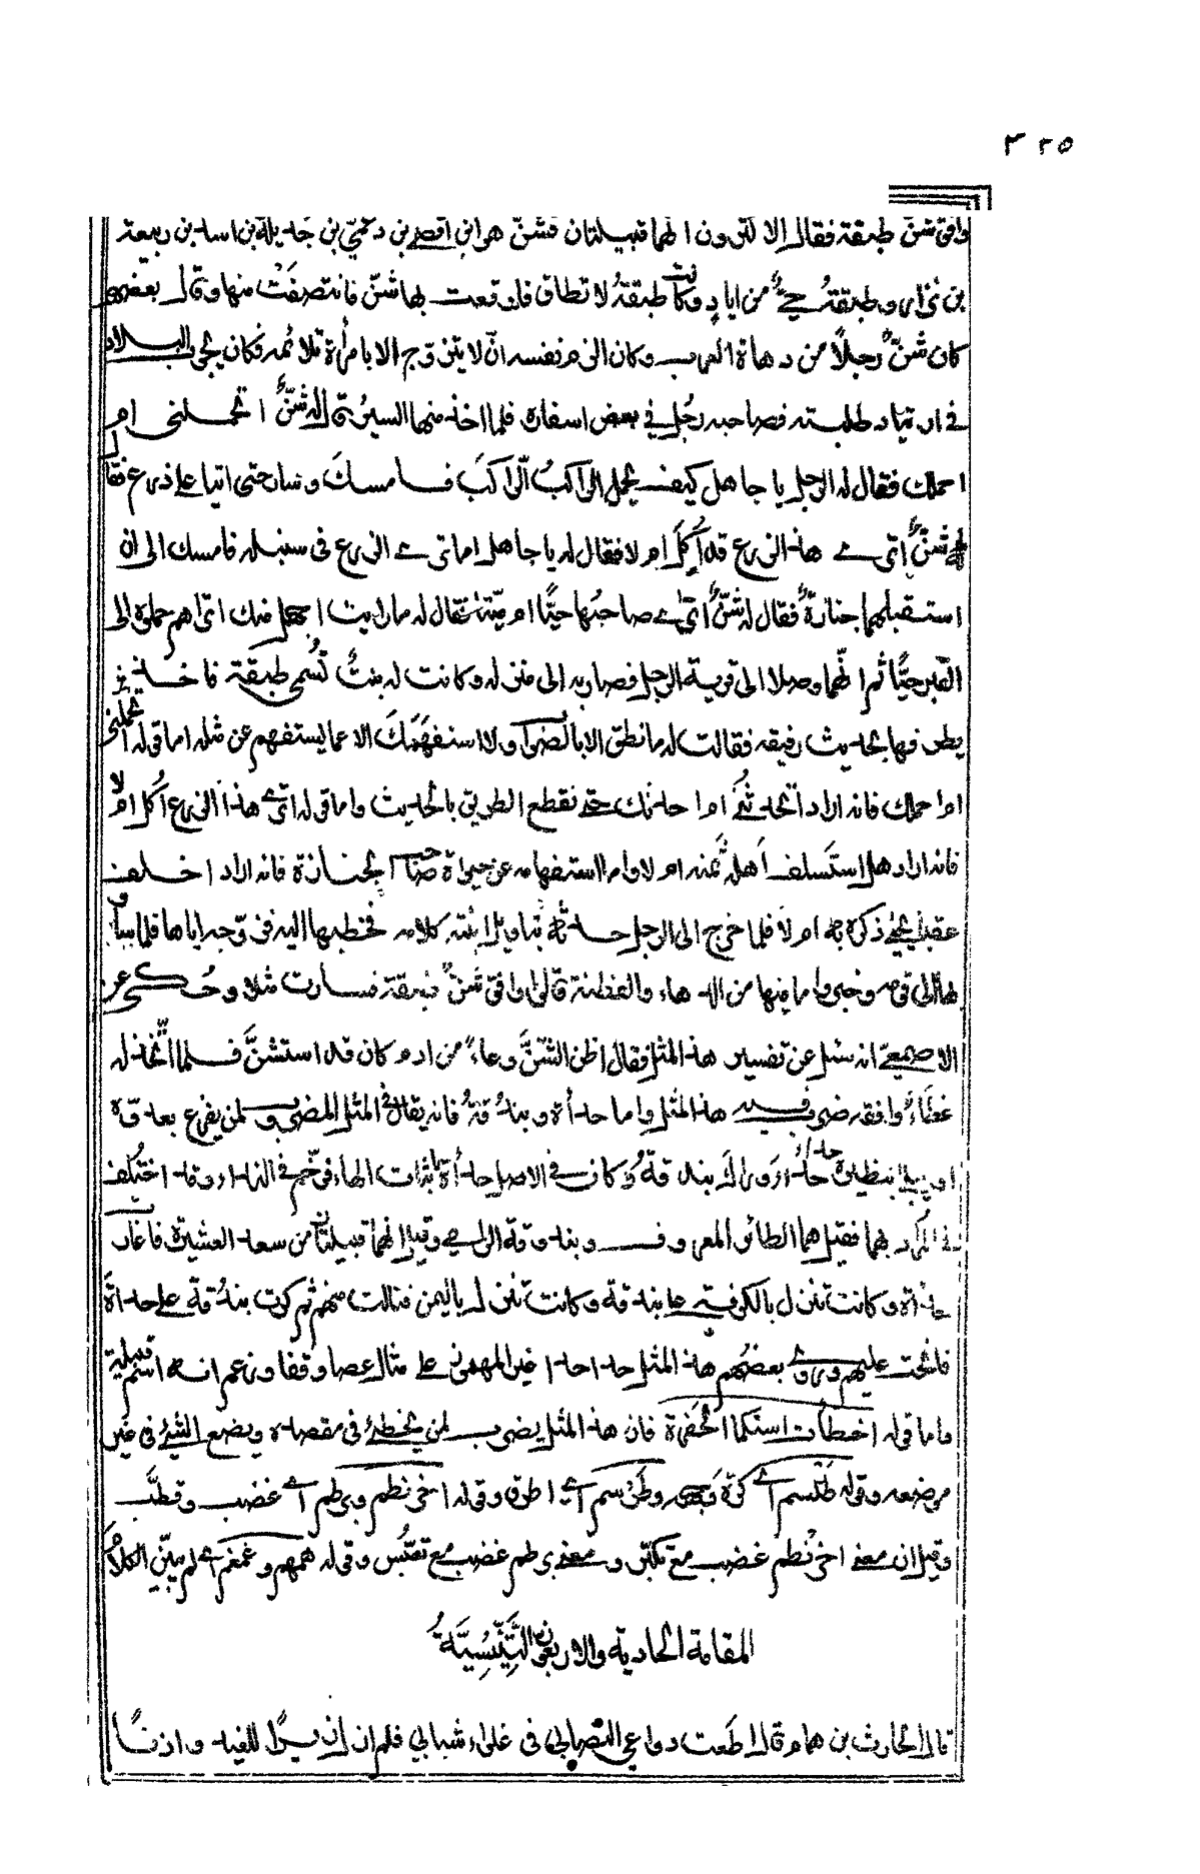 ٣٢٥
وافق شنّ طبقة فقال الاكثرون انهما قبيلتان فشنّ هو ابن اقصى بن دعميّ بن جديلة بن اسد بن ربيعة
بن نزار وطبقةُ حيٌّ من اياد وكانت طبقةُ لا تطاق فاوقعت بها شنّ فانتصفَتْ منها وقال بعضهم
كان شنٌّ رجلًا من دهاة العرب وكان الزم نفسه ان لا يتزوج الا بامرأة تلائمه فكان يجوب البلاد
في ارتياد طلبته فصاحبه رجُل في بعض اسفاره فلما اخذ منهما السيرُ قال له شنٌّ اتحملنى ام
احملك فقال له الرجل يا جاهل كيف يحمل الراكبُ الراكبَ فامسكَ وسار حتى اتيا على زرع فقال
له شنٌّ اترى هذا الزرع قد أُكِلَ ام لا فقال له يا جاهل اما ترى الزرع فى سنبله فامسك الى ان
استقبلهما جنازةٌ فقال له شنٌّ أترى صاحبُها حيًّا ام ميّتا فقال له ما رايت اجهل منك اتراهم حملوه الى
القبر حيًّا ثم انّهما وصلا الى قرية الرجل فصار به الى منزله وكانت له بنتٌ تُسمى طبقة فاخذ
يطرفها بحديث رفيقه فقالت له ما نطق الا بالصواب ولا استفهمَكَ الا عما يستفهم عن مثله اما قوله اتحملنى
ام احملك فانه اراد اتحدثُنى ام احدثك حتى نقطع الطريق بالحديث واما قوله اترى هذا الزرع أُكل ام لا
فانه اراد هل استسلف أهله ثَمنه ام لا واما استفهامه عن حيوة صاحب الجنازة فانه اراد اخلف
عقبًا يُحيى ذكره به ام لا فلما خرج الى الرجل حدثه بتاويل ابنته كلامه فخطبها اليه فزوّجه اياها فلما سار
بها الى قومه وخبروا ما فيها من الدهاء والفطنة قالوا وافق شنٌّ طبقة فسارت مثلا وحُكى عن
الاصمعيّ انه سئل عن تفسير هذا المثل فقال اظن الشَّنَّ وعاءً من ادم كان قد استشنَّ فلما اتُّخذ له
غطاءً وافقه ضرب فيه هذا المثل واما حدأة وبندُقةُ فانه يقال فى المثل المضروب لمن يفزع بعدوّه
في المراد بهما فقيل هما الطائر المعروف وبندوقة الرامي وقيل انهما قبيلتان من سعد العشيرة فاغارت
حدأة وكانت تنزل بالكوفة على بندقة وكانت تنزل باليمن فنالت منهم ثم كرت بندُقة على حدأة
فانحت عليهم وروى بعضُهم هذا المثل حدا حدا غير المهموز على مثال عصا وقفا وزعم انه اسم قبيلة
واما قوله اخطأت استكما الحفرة فان هذا المثل يضرب لمن يخطئ فى مقصده ويضع الشئ فى غير
موضعه وقوله طلسم اے كرّه وجهه وطرسم اے اطرق وقوله اخرنطم وبرطم اے غضب وقطّب
وقيل ان معنى اخرنْطم غضب مع تكبّر ومعنى برطم غضب مع تعبّس وقوله همهم وغمغم اے لم يبيّن الكلامُ
المقامة الحادية والاربعون التِّنِّيسِيَّةُ
قال الحارث بن همام قال اطعت دواعى التصابى فى غلواء شبابي فلم ازل زيرًا للغيد واذنًا